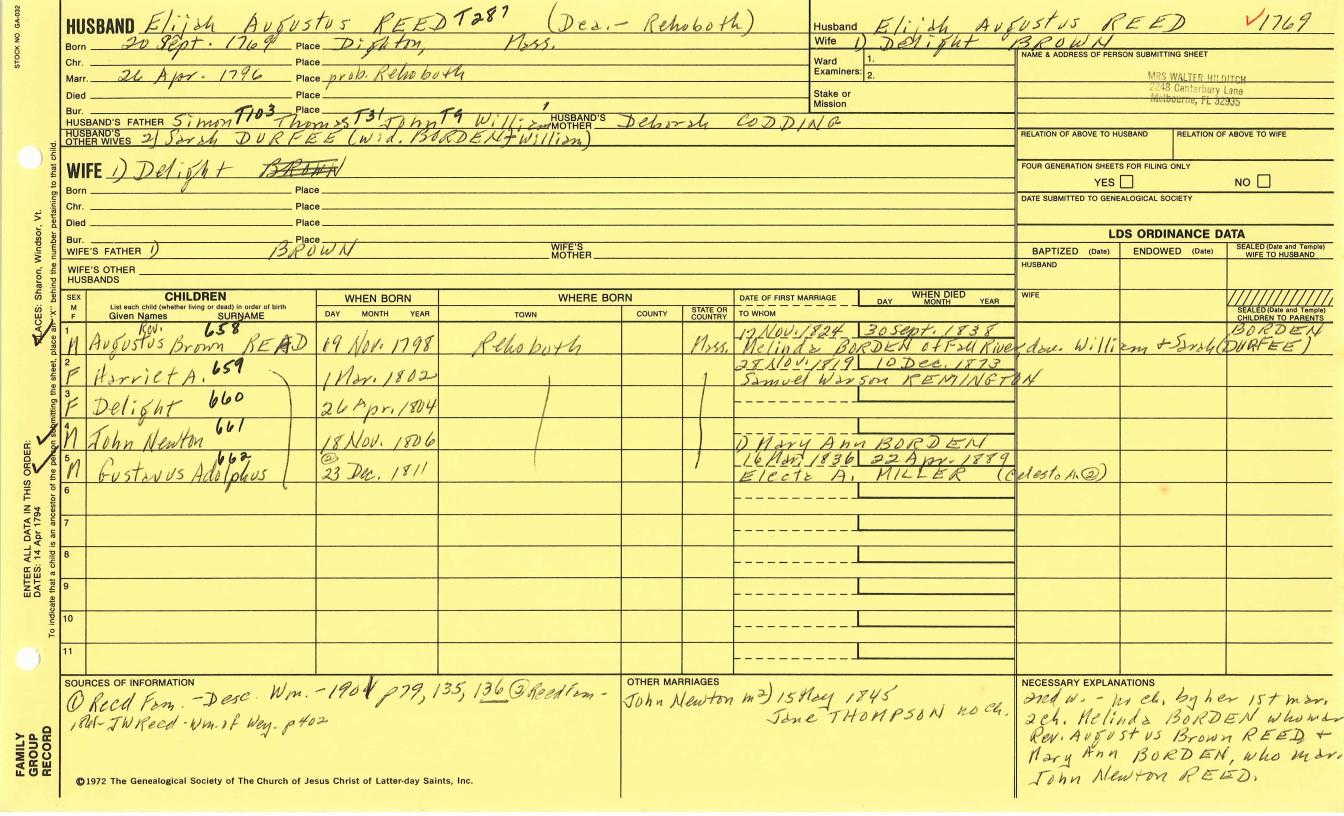 STOCK NO. GA-032
HUSBAND Elijah Augustus REED T287 (Dea. - Rehoboth)
Born 20 Sept. 1769 Place Dighton, Mass.
Chr. Place
Marr. 26 Apr. 1796 Place prob. Rehoboth
Died Place
Bur. Place
HUSBAND'S FATHER Simon T103 Thomas T31 John T9 William 1 HUSBAND'S MOTHER Deborah CODDING
HUSBAND'S OTHER WIVES 2) Sarah DURFEE (wid. BORDEN, William)
WIFE 1) Delight BROWN
Born Place
Chr. Place
Died Place
Bur. Place
WIFE'S FATHER 1) BROWN WIFE'S MOTHER
WIFE'S OTHER HUSBANDS
Husband Elijah Augustus REED ✓1769
Wife 1) Delight BROWN
Ward Examiners: 1.
2.
Stake or Mission
NAME & ADDRESS OF PERSON SUBMITTING SHEET
MRS WALTER HILDITCH
2248 Canterbury Lane
Melbourne, FL 32935
RELATION OF ABOVE TO HUSBAND RELATION OF ABOVE TO WIFE
FOUR GENERATION SHEETS FOR FILING ONLY
YES NO
DATE SUBMITTED TO GENEALOGICAL SOCIETY
LDS ORDINANCE DATA
BAPTIZED (Date) ENDOWED (Date) SEALED (Date and Temple) WIFE TO HUSBAND
HUSBAND
WIFE
SEALED (Date and Temple) CHILDREN TO PARENTS
SEX M F
CHILDREN
List each child (whether living or dead) in order of birth
Given Names SURNAME
WHEN BORN
DAY MONTH YEAR
WHERE BORN
TOWN COUNTY STATE OR COUNTRY
DATE OF FIRST MARRIAGE
TO WHOM
WHEN DIED
DAY MONTH YEAR
1 M Rev. Augustus Brown READ 658 19 Nov. 1798 Rehoboth Mass. 17 Nov. 1824 30 Sept. 1838
Melinda BORDEN of Fall River dau. William & Sarah (DURFEE) BORDEN
2 F Harriet A. 659 1 Mar. 1802 28 Nov. 1819 10 Dec. 1873
Samuel Watson REMINGTON
3 F Delight 660 26 Apr. 1804
4 M John Newton 661 18 Nov. 1806
1) Mary Ann BORDEN
5 M Gustavus Adolphus 662 ② 23 Dec. 1811 16 Mar. 1836 22 Apr. 1889
Electa A. MILLER (Celesta A ②)
6
7
8
9
10
11
SOURCES OF INFORMATION
① Reed Fam. - Desc. Wm. - 1901 p79, 135, 136 ② Reed Fam -
JWReed - Wm. of Wey. p402
©1972 The Genealogical Society of The Church of Jesus Christ of Latter-day Saints, Inc.
OTHER MARRIAGES
John Newton m 2) 15 May 1845
Jane THOMPSON no ch.
NECESSARY EXPLANATIONS
2nd w. - no ch. by her 1st mar.
2 ch. Melinda BORDEN who mar
Rev. Augustus Brown REED &
Mary Ann BORDEN, who mar.
John Newton REED.
ENTER ALL DATA IN THIS ORDER:
DATES: 14 Apr 1794
PLACES: Sharon, Windsor, Vt.
To indicate that a child is an ancestor of the person submitting the sheet, place an "X" behind the number pertaining to that child.
FAMILY
GROUP
RECORD